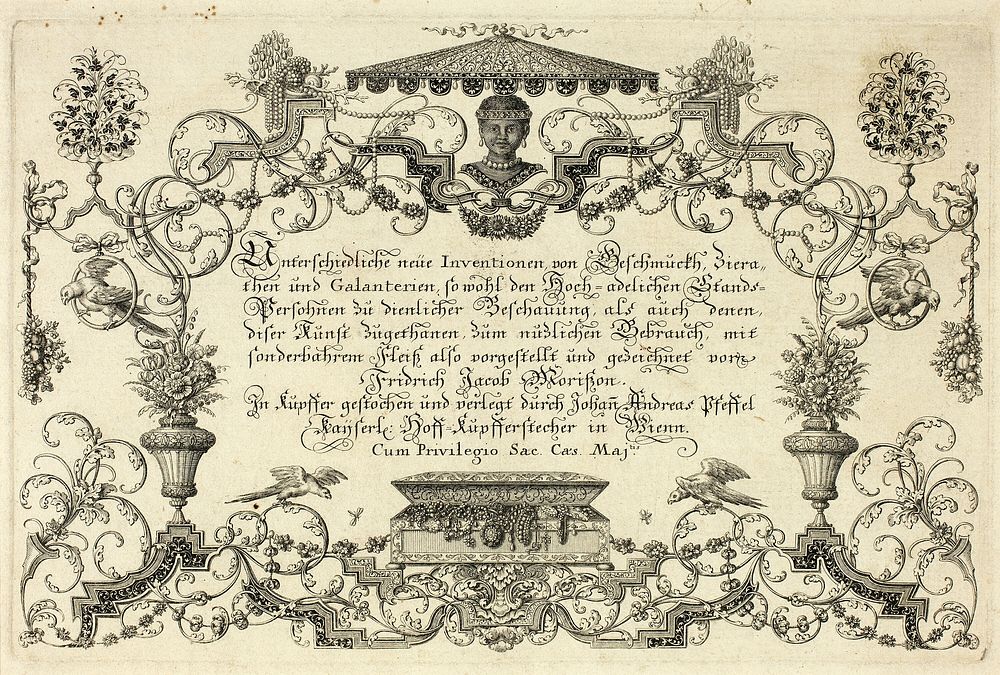 Unterschiedliche neüe Inventionen, von Geschmückh, Ziera„
then und Galanterien, so wohl den Hoch-adelichen Stands-
Persohnen zü dienlicher Beschauüng, als auch denen,
diser Kunst zügethanen, züm nüdlichen Gebrauch, mit
sonderbahrem Fleiß also vorgestellt und gezeichnet von
Fridrich Jacob Morißon.
In Küpffer gestochen und verlegt durch Johañ Andreas Pfeffel
Kayserl: Hoff-Küpfferstecher in Wienn.
Cum Privilegio Sac. Cæs. Maj:tis